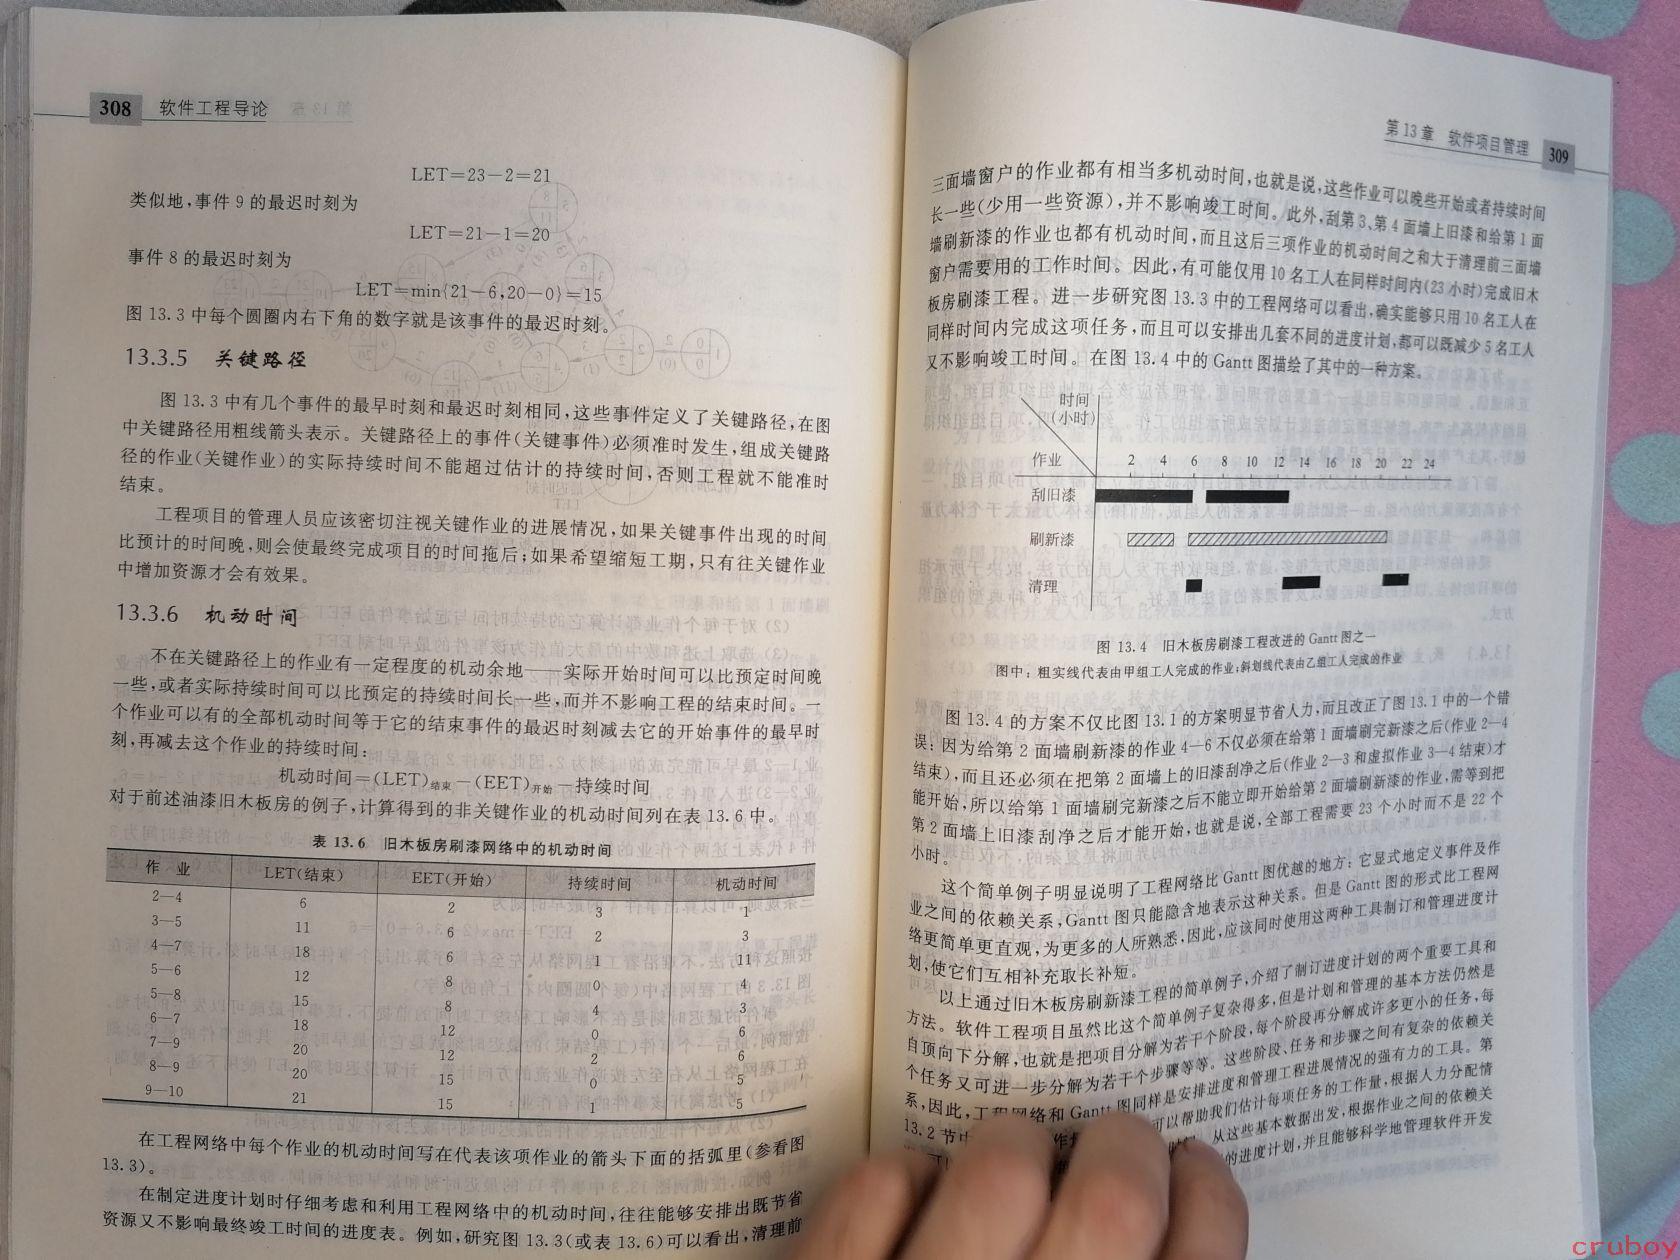 308 软件工程导论
LET=23-2=21
类似地,事件 9 的最迟时刻为
LET=21-1=20
事件 8 的最迟时刻为
LET=min{21-6,20-0}=15
图 13.3 中每个圆圈内右下角的数字就是该事件的最迟时刻。
13.3.5 关键路径
图 13.3 中有几个事件的最早时刻和最迟时刻相同,这些事件定义了关键路径,在图
中关键路径用粗线箭头表示。关键路径上的事件(关键事件)必须准时发生,组成关键路
径的作业(关键作业)的实际持续时间不能超过估计的持续时间,否则工程就不能准时
结束。
工程项目的管理人员应该密切注视关键作业的进展情况,如果关键事件出现的时间
比预计的时间晚,则会使最终完成项目的时间拖后;如果希望缩短工期,只有往关键作业
中增加资源才会有效果。
13.3.6 机动时间
不在关键路径上的作业有一定程度的机动余地——实际开始时间可以比预定时间晚
一些,或者实际持续时间可以比预定的持续时间长一些,而并不影响工程的结束时间。一
个作业可以有的全部机动时间等于它的结束事件的最迟时刻减去它的开始事件的最早时
刻,再减去这个作业的持续时间:
机动时间=(LET)结束-(EET)开始-持续时间
对于前述油漆旧木板房的例子,计算得到的非关键作业的机动时间列在表 13.6 中。
表 13.6 旧木板房刷漆网络中的机动时间
作 业 LET(结束) EET(开始) 持续时间 机动时间
2—4 6 2 3 1
3—5 11 6 2 3
4—7 18 6 1 11
5—6 12 8 0 4
5—8 15 8 4 3
6—7 18 12 0 6
7—9 20 12 2 6
8—9 20 15 0 5
9—10 21 15 1 5
在工程网络中每个作业的机动时间写在代表该项作业的箭头下面的括弧里(参看图
13.3)。
在制定进度计划时仔细考虑和利用工程网络中的机动时间,往往能够安排出既节省
资源又不影响最终竣工时间的进度表。例如,研究图 13.3(或表 13.6)可以看出,清理前
第 13 章 软件项目管理 309
三面墙窗户的作业都有相当多机动时间,也就是说,这些作业可以晚些开始或者持续时间
长一些(少用一些资源),并不影响竣工时间。此外,刮第 3、第 4 面墙上旧漆和给第 1 面
墙刷新漆的作业也都有机动时间,而且这后三项作业的机动时间之和大于清理前三面墙
窗户需要用的工作时间。因此,有可能仅用 10 名工人在同样时间内(23 小时)完成旧木
板房刷漆工程。进一步研究图 13.3 中的工程网络可以看出,确实能够只用 10 名工人在
同样时间内完成这项任务,而且可以安排出几套不同的进度计划,都可以既减少 5 名工人
又不影响竣工时间。在图 13.4 中的 Gantt 图描绘了其中的一种方案。
时间
(小时)
作业 2 4 6 8 10 12 14 16 18 20 22 24
刮旧漆
刷新漆
清理
图 13.4 旧木板房刷漆工程改进的 Gantt 图之一
图中:粗实线代表由甲组工人完成的作业;斜划线代表由乙组工人完成的作业
图 13.4 的方案不仅比图 13.1 的方案明显节省人力,而且改正了图 13.1 中的一个错
误:因为给第 2 面墙刷新漆的作业 4—6 不仅必须在给第 1 面墙刷完新漆之后(作业 2—4
结束),而且还必须在把第 2 面墙上的旧漆刮净之后(作业 2—3 和虚拟作业 3—4 结束)才
能开始,所以给第 1 面墙刷完新漆之后不能立即开始给第 2 面墙刷新漆的作业,需等到把
第 2 面墙上旧漆刮净之后才能开始,也就是说,全部工程需要 23 个小时而不是 22 个
小时。
这个简单例子明显说明了工程网络比 Gantt 图优越的地方:它显式地定义事件及作
业之间的依赖关系,Gantt 图只能隐含地表示这种关系。但是 Gantt 图的形式比工程网
络更简单更直观,为更多的人所熟悉,因此,应该同时使用这两种工具制订和管理进度计
划,使它们互相补充取长补短。
以上通过旧木板房刷新漆工程的简单例子,介绍了制订进度计划的两个重要工具和
方法。软件工程项目虽然比这个简单例子复杂得多,但是计划和管理的基本方法仍然是
自顶向下分解,也就是把项目分解为若干个阶段,每个阶段再分解成许多更小的任务,每
个任务又可进一步分解为若干个步骤等等。这些阶段、任务和步骤之间有复杂的依赖关
系,因此,工程网络和 Gantt 图同样是安排进度和管理工程进展情况的强有力的工具。第
13.2 节中 可以帮助我们估计每项任务的工作量,根据人力分配情
从这些基本数据出发,根据作业之间的依赖关
的进度计划,并且能够科学地管理软件开发
cruboy